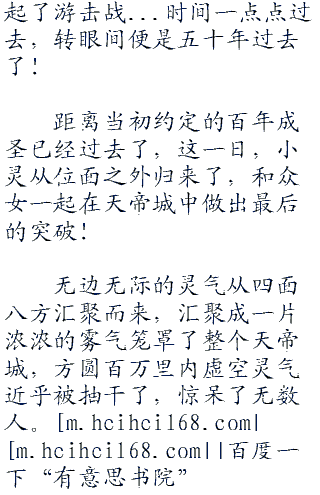 起了游击战...时间一点点过
去，转眼间便是五十年过去
了！
距离当初约定的百年成
圣已经过去了，这一日，小
灵从位面之外归来了，和众
女一起在天帝城中做出最后
的突破！
无边无际的灵气从四面
八方汇聚而来，汇聚成一片
浓浓的雾气笼罩了整个天帝
城，方圆百万里内虚空灵气
近乎被抽干了，惊呆了无数
人。[m.hcihci168.com|
[m.hcihci168.com||百度一
下“有意思书院”